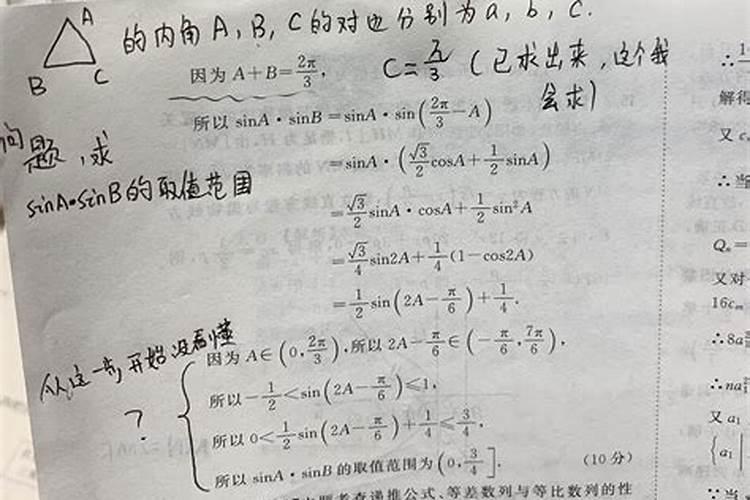 A
B
C
的内角A,B,C的对边分别为a,b,c.
因为 A+B=2π/3,
C=π/3 (已求出来,这个我
会求)
所以 sinA·sinB=sinA·sin(2π/3-A)
问题,求
sinA·sinB的取值范围
=sinA·(√3/2cosA+1/2sinA)
=√3/2sinA·cosA+1/2sin²A
=√3/4sin2A+1/4(1-cos2A)
=1/2sin(2A-π/6)+1/4.
从这一步,开始没看懂
?
因为 A∈(0,2π/3),所以 2A-π/6∈(-π/6,7π/6),
所以-1/2<sin(2A-π/6)≤1,
所以 0<1/2sin(2A-π/6)+1/4≤3/4,
所以 sinA·sinB 的取值范围为(0,3/4]. (10分)
查递推公式、等差数列与等比数列的性
解得
又 c
∴当
Qₙ=
又对
16c
∴8a
∴na
又 a₁
a₁